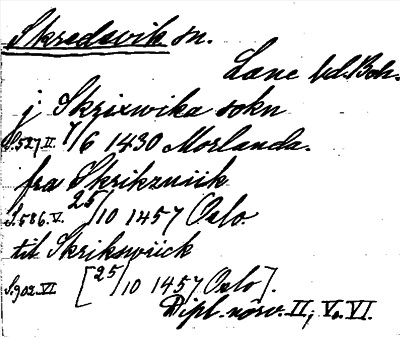 Skredsvik sn.
Lane hd. Boh.
j Skrixwika sokn
S.527.II. 7/6 1430 Morlanda.
fra Skrikzuiik
S.586.V. 25/10 1457 Oslo.
til Skrikswiick
S.902.VI [25/10 1457 Oslo].
Dipl. norv. II, V o. VI.